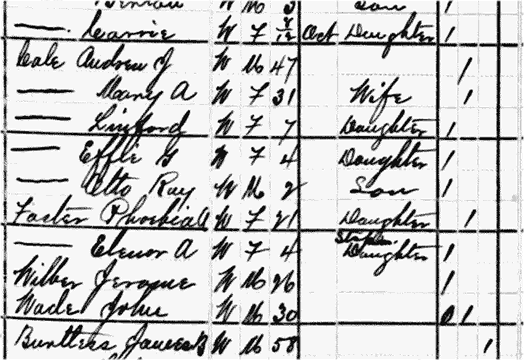 W M 3 Son 1
— Carrie W F 7/12 Oct Daughter 1
Cole Andrew J W M 47 1
— Mary A W F 31 Wife 1
— Linford W F 7 Daughter 1
— Effie G W F 4 Daughter 1
— Otto Ray W M 2 Son 1
Foster W F 21 Daughter 1
— Elenor A W F 4 Step Daughter 1
Wilber Jerome W M 26 1
Wade John W M 30 0 1
James B W M 58 1